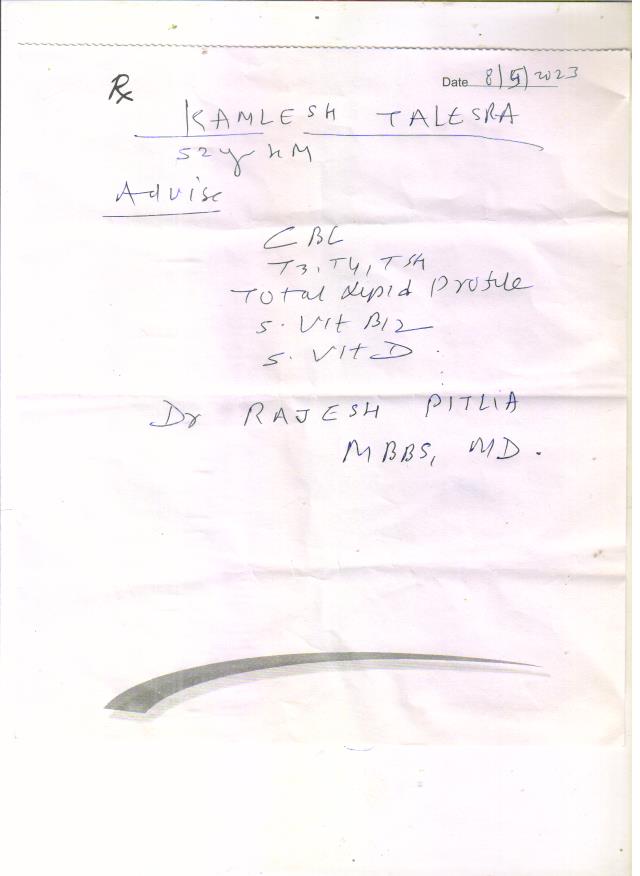 Rx
Date 8/5/2023
KAMLESH TALESRA
52 yr M
Advise
CBC
T3, T4, TSH
Total Lipid Profile
S. Vit B12
S. Vit D
Dr RAJESH PITLIA
MBBS, MD.